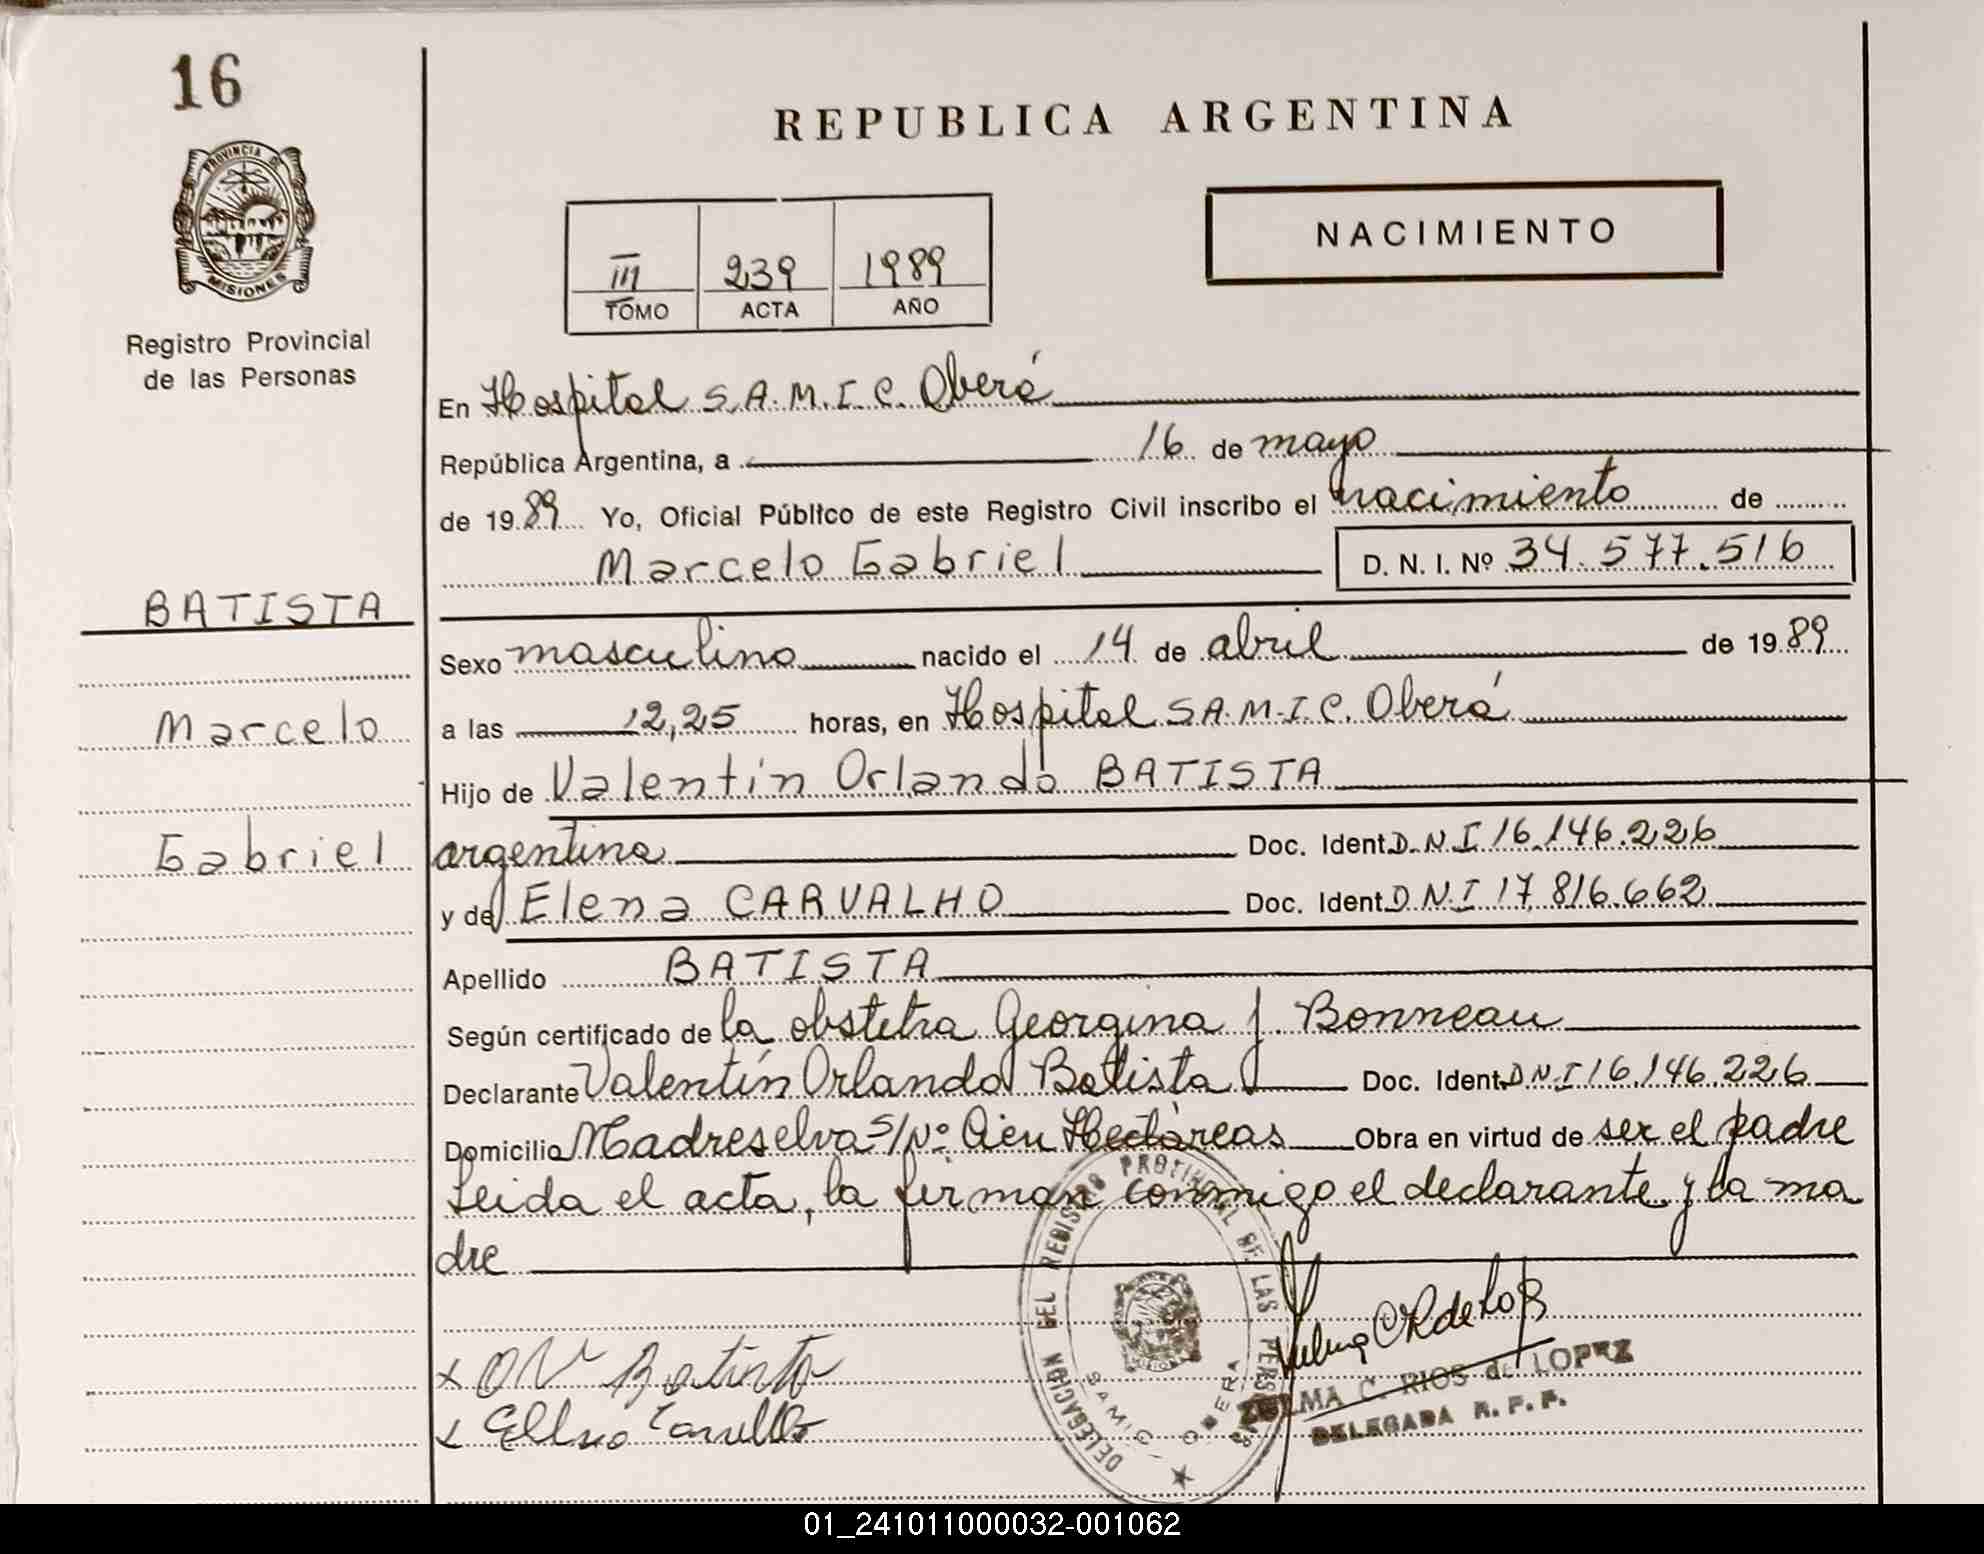 16
REPUBLICA ARGENTINA
PROVINCIA DE
MISIONES
NACIMIENTO
III 239 1989
TOMO ACTA AÑO
Registro Provincial
de las Personas
En Hospital S.A.M.I.C. Oberá
República Argentina, a 16 de mayo
de 1989 Yo, Oficial Público de este Registro Civil inscribo el nacimiento de
Marcelo Gabriel D. N. I. Nº 34.577.516
BATISTA
Marcelo
Gabriel
Sexo masculino nacido el 14 de abril de 1989
a las 12,25 horas, en Hospital S.A.M.I.C. Oberá
Hijo de Valentín Orlando BATISTA
argentina Doc. Ident. D.N.I 16.146.226
y de Elena CARVALHO Doc. Ident. D.N.I 17.816.662
Apellido BATISTA
Según certificado de la obstetra Georgina J. Bonneau
Declarante Valentín Orlando Batista Doc. Ident. D.N.I 16.146.226
Domicilio Madreselva S/Nº Cien Hectáreas Obra en virtud de ser el padre
Leida el acta, la firman conmigo el declarante y la ma
dre
DELEGACION DEL REGISTRO PROVINCIAL DE LAS PERSONAS
SAMIC - OBERA
x Batista
x
ZULMA C. RIOS de LOPEZ
DELEGADA R. P. P.
01_241011000032-001062